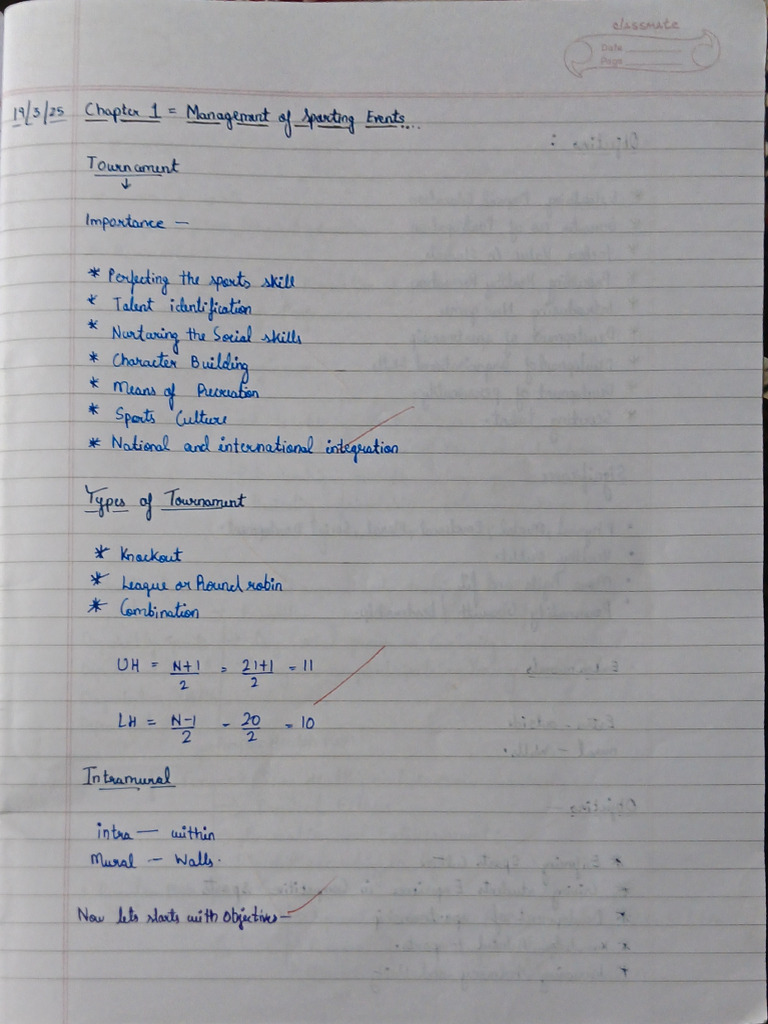 classmate
Date
Page
19/3/25 Chapter 1 = Management of Sporting Events...
Tournament
↓
Importance —
* Perfecting the sports skill
* Talent identification
* Nurtaring the Social skills
* Character Building
* Means of Recreation
* Sports Culture
* National and international integration
Types of Tournament
* Knockout
* League or Round robin
* Combination
UH = N+1/2 = 21+1/2 = 11
LH = N-1/2 = 20/2 = 10
Intramural
intra — within
Mural — Walls.
Now lets starts with Objectives —